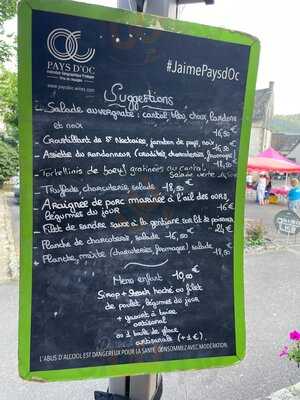 PAYS D'OC
Indication Géographique Protégée
www.paysdoc-wines.com
#JaimePaysdOc
Suggestions
- Salade auvergnate : cantal, bleu, choux, lardons
et noix - 16,50 €
- Croustillant de St Nectaire, jambon de pays, noix - 16,50 €
- Assiette du randonneur (crudités, charcuteries, fromages) - 18,50 €
- Tortellinis de boeuf gratinées au cantal
Salade verte 16,50 €
- Truffade, charcuterie, salade - 18,50 €
- Araignée de porc marinée à l'ail des ours,
légumes du jour - 16 €
- Filet de sandre sauce à la gentiane sur lit de poireaux - 24 €
- Planche de charcuterie, salade - 16,50 €
- Planche mixte (charcuteries, fromages) salade - 18,50 €
Menu enfant - 10,00 €
Sirop + Steack haché ou filet
de poulet, légumes du jour
+ yaourt à boire
artisanal
ou 1 boule de glace
artisanale (+ 1 €).
L'ABUS D'ALCOOL EST DANGEREUX POUR LA SANTÉ, CONSOMMEZ AVEC MODÉRATION.